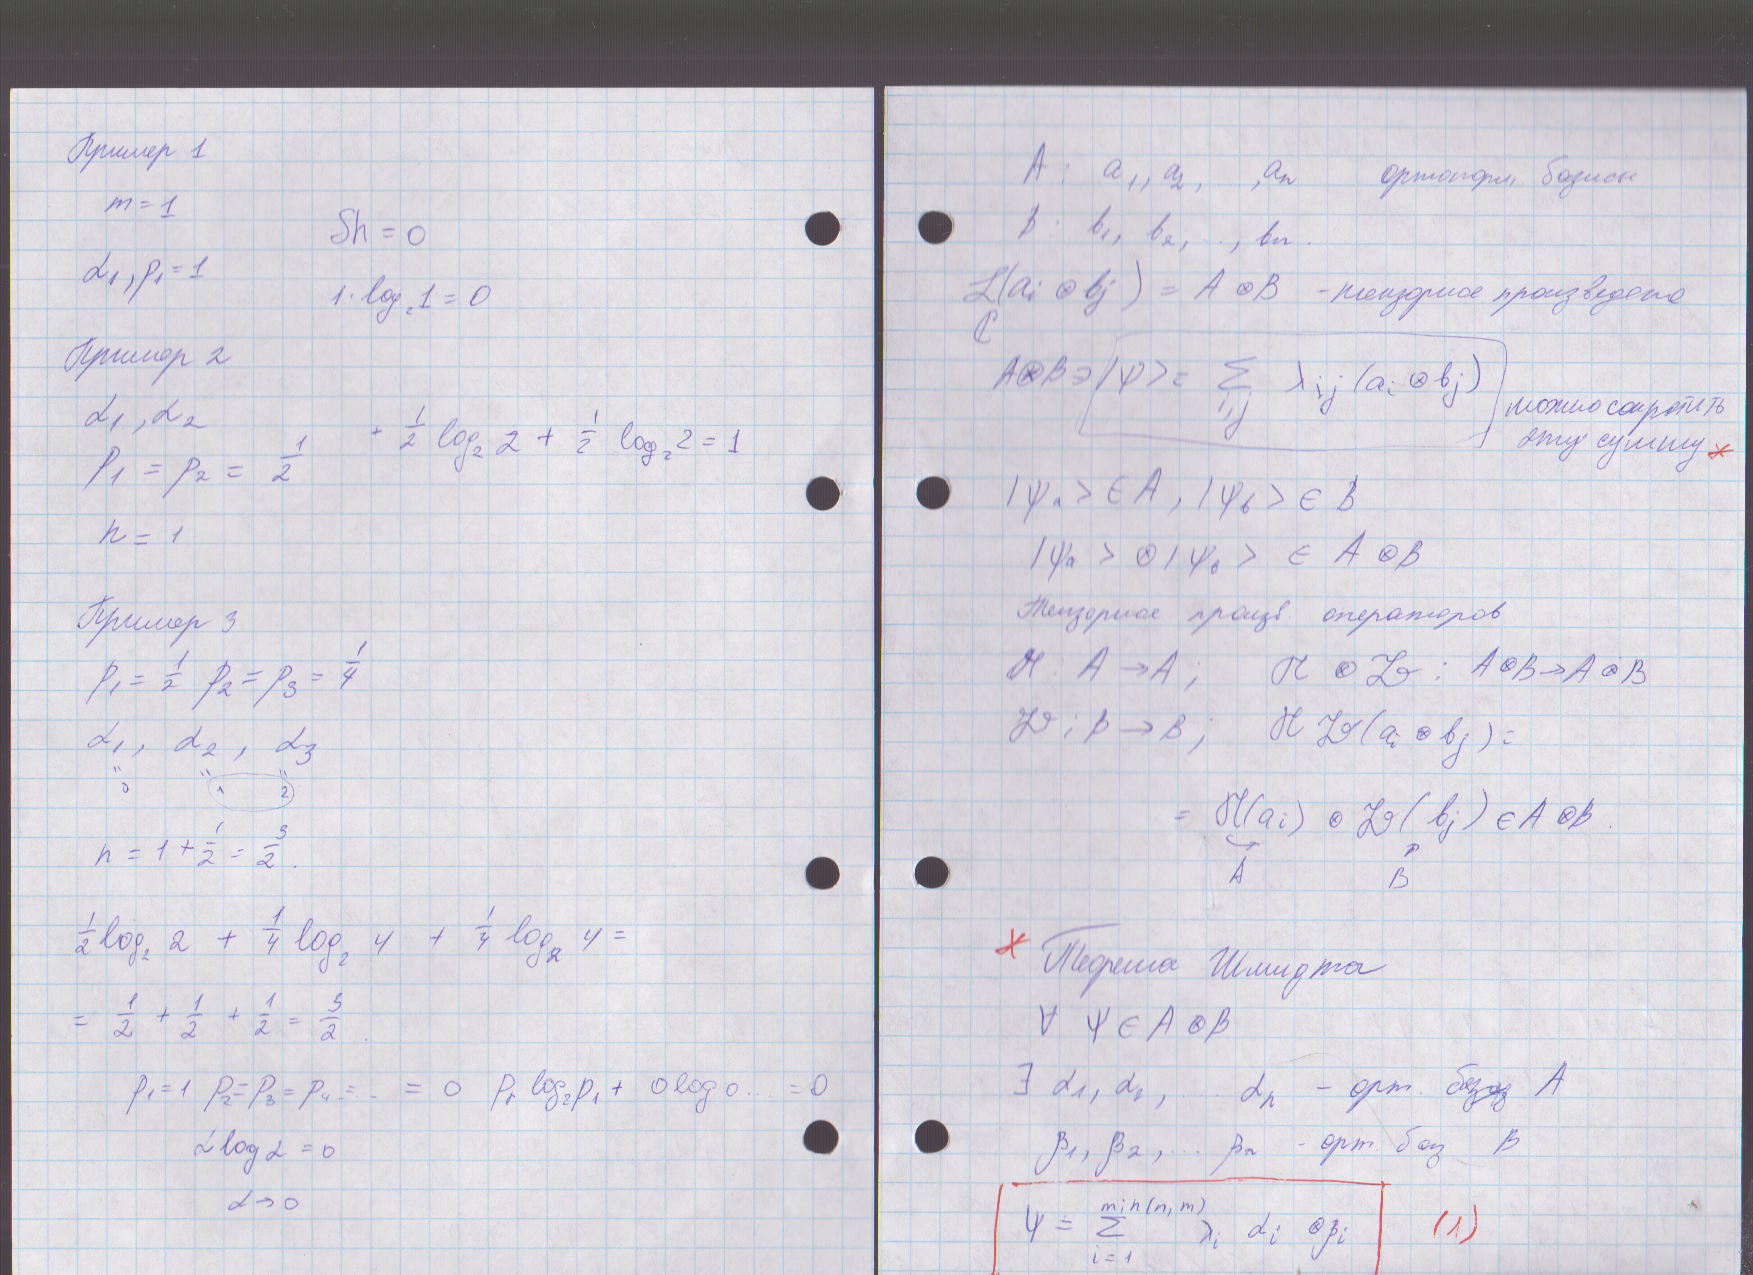 Пример 1
m = 1
Sh = 0
α₁, p₁ = 1
1·log₂1 = 0
Пример 2
α₁, α₂
+ 1/2 log₂ 2 + 1/2 log₂ 2 = 1
p₁ = p₂ = 1/2
n = 1
Пример 3
p₁ = 1/2 p₂ = p₃ = 1/4
α₁, α₂, α₃
" " "
0 1 2
n = 1 + 1/2 = 3/2.
1/2 log₂ 2 + 1/4 log₂ 4 + 1/4 log₂ 4 =
= 1/2 + 1/2 + 1/2 = 3/2.
p₁ = 1 p₂ = p₃ = p₄ = ... = 0 p₁ log₂ p₁ + 0 log 0 ... = 0
α log α = 0
α → 0
A : a₁, a₂, , aₙ ортонорм. базисы
B : b₁, b₂, ..., bₘ.
L(aᵢ ⊗ bⱼ) = A ⊗ B - тензорное произведение
C
A⊗B ∋ |ψ> = Σ λᵢⱼ (aᵢ ⊗ bⱼ)
i,j
можно сократить
эту сумму *
|ψₐ> ∈ A, |ψ_b> ∈ B
|ψₐ> ⊗ |ψ_b> ∈ A ⊗ B
Тензорное произв. операторов
: A → A; ⊗ : A⊗B → A⊗B
: B → B; (aᵢ ⊗ bⱼ) =
= (aᵢ) ⊗ (bⱼ) ∈ A ⊗ B.
A B
* Теорема Шмидта
∀ ψ ∈ A ⊗ B
∃ α₁, α₂, ... αₙ - орт. базис A
β₁, β₂, ... βₘ - орт. баз B
ψ = Σ λᵢ αᵢ ⊗ βᵢ (1)
min(n,m)
i=1